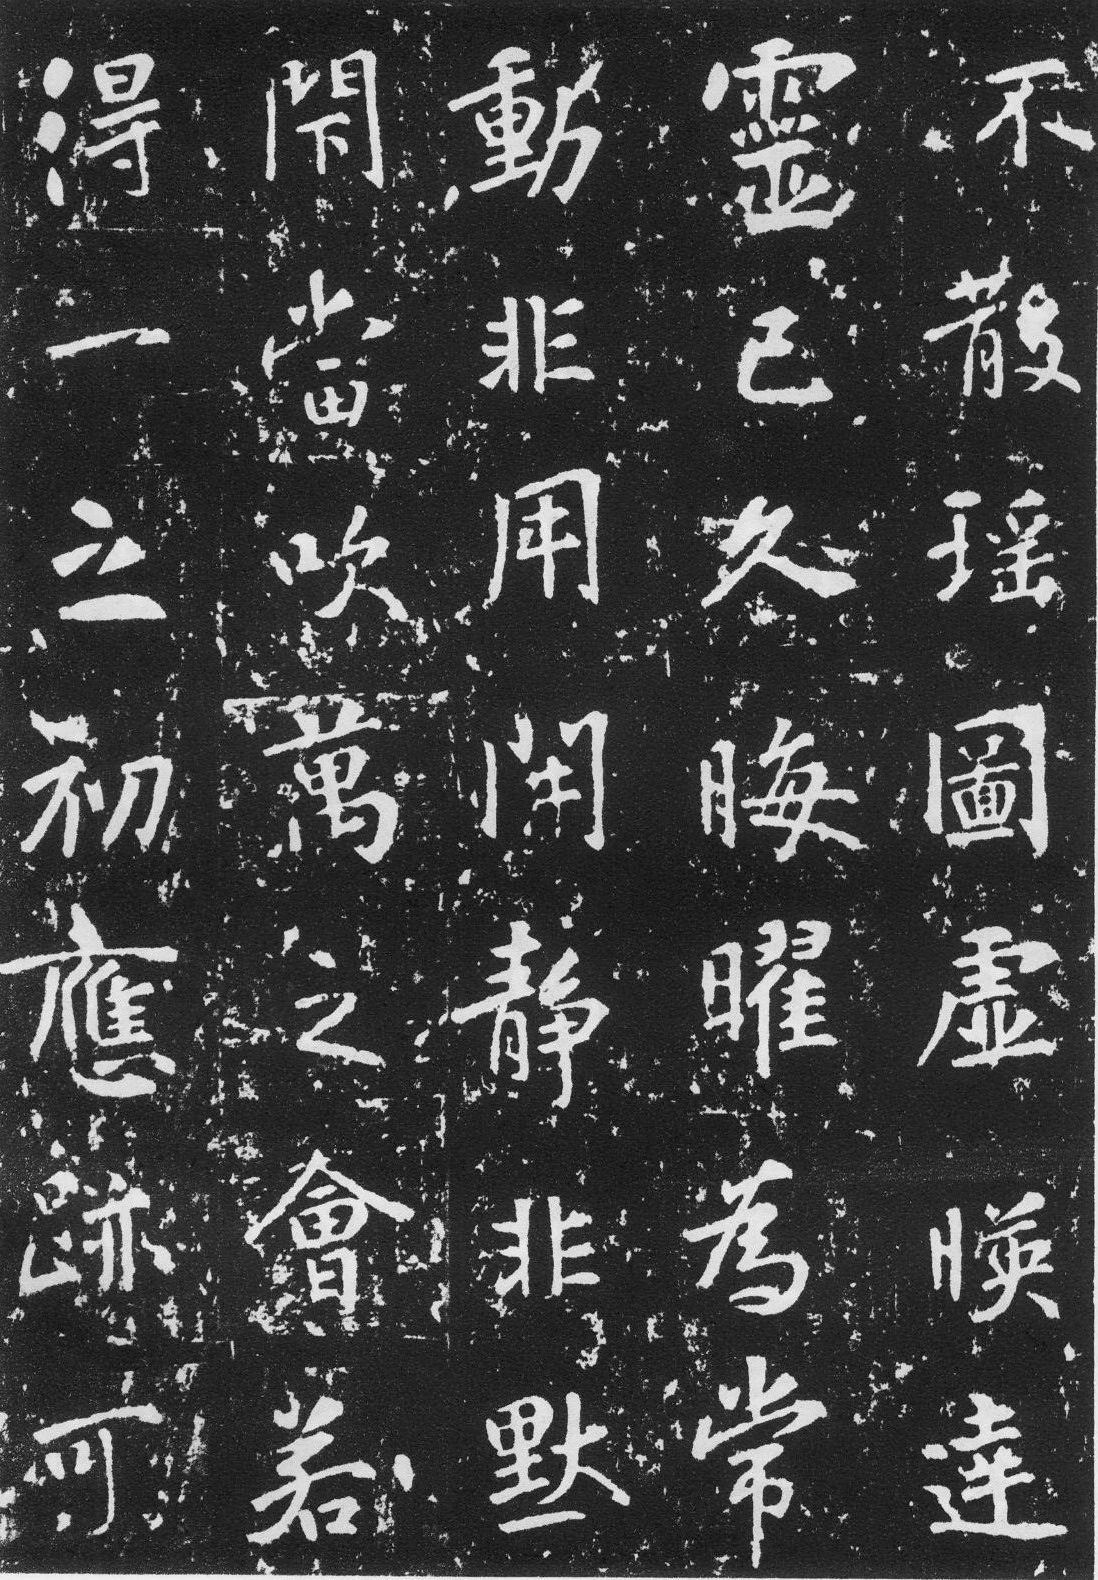 不散瑶圖虛暎達
靈已久晦曜為常
動非用閑靜非默
閇當吹萬之會若
淂一之初應跡可